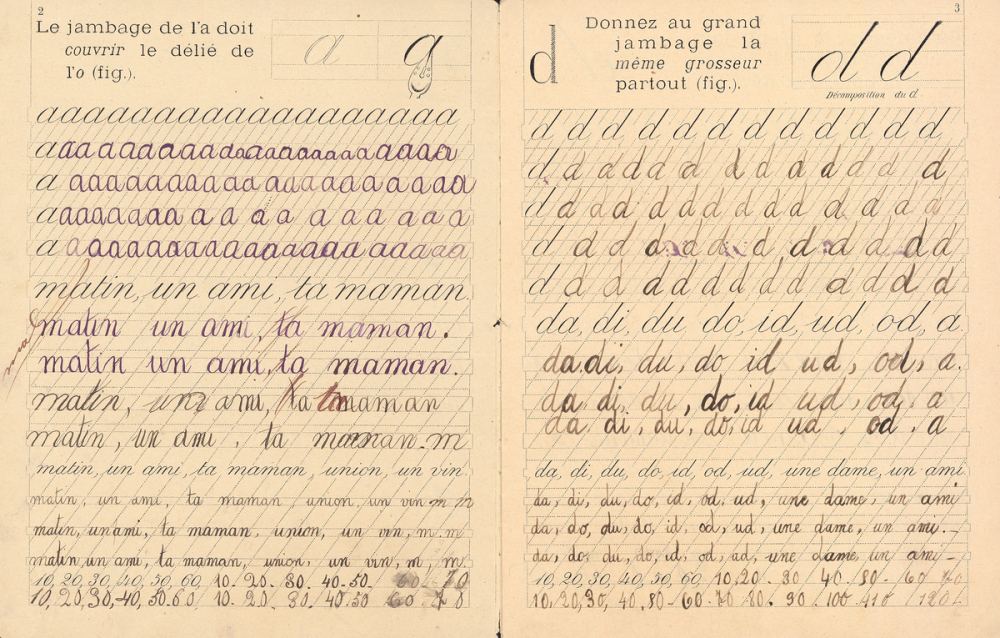 2
Le jambage de l'a doit
couvrir le délié de
l'o (fig.).
a a
a a a a a a a a a a a a a a a a a a a
a a a a a a a a a a a a a a a a a a a a
a a a a a a a a a a a a a a a a a a a
a a a a a a a a a a a a a a a a a
a a a a a a a a a a a a a a a a a a a
matin, un ami, ta maman
matin un ami, ta maman.
matin un ami, ta maman.
matin, ami, ta maman
matin, un ami, ta maman. m
matin, un ami, ta maman, union, un vin
matin, un ami, ta maman, union, un vin m m
matin, un ami, ta maman, union, un vin, m. m
matin, un ami, ta maman, union, un vin, m, m.
10, 20, 30, 40, 50, 60, 10. 20. 30. 40. 50. 60 70
10, 20, 30, 40, 50. 60 10. 20. 30. 40. 50 60 70
3
d
Donnez au grand
jambage la
même grosseur
partout (fig.).
d d
Décomposition du d.
d d d d d d d d d d d d
d d d d d d d d d d d d
d d d d d d d d d d d d d
d d d d d d d d d d d d
d d d d d d d d d d d d
da, di, du, do, id, ud, od, a
da, di, du, do id ud, od, a.
da di, du, do, id ud, od, a
da di, du, do, id ud, od, a
da, di, du, do, id, od, ud, une dame, un ami
da, di, du, do, id, od, ud, une dame, un ami
da, do, du, do, id, od, ud, une dame, un ami.
da, do, du, do, id, od, ad, une dame, un ami
10, 20, 30, 40, 50, 60, 10, 20. 30 40. 50. 60 70
10, 20, 30, 40, 50 60. 70. 80. 90. 100 110 120